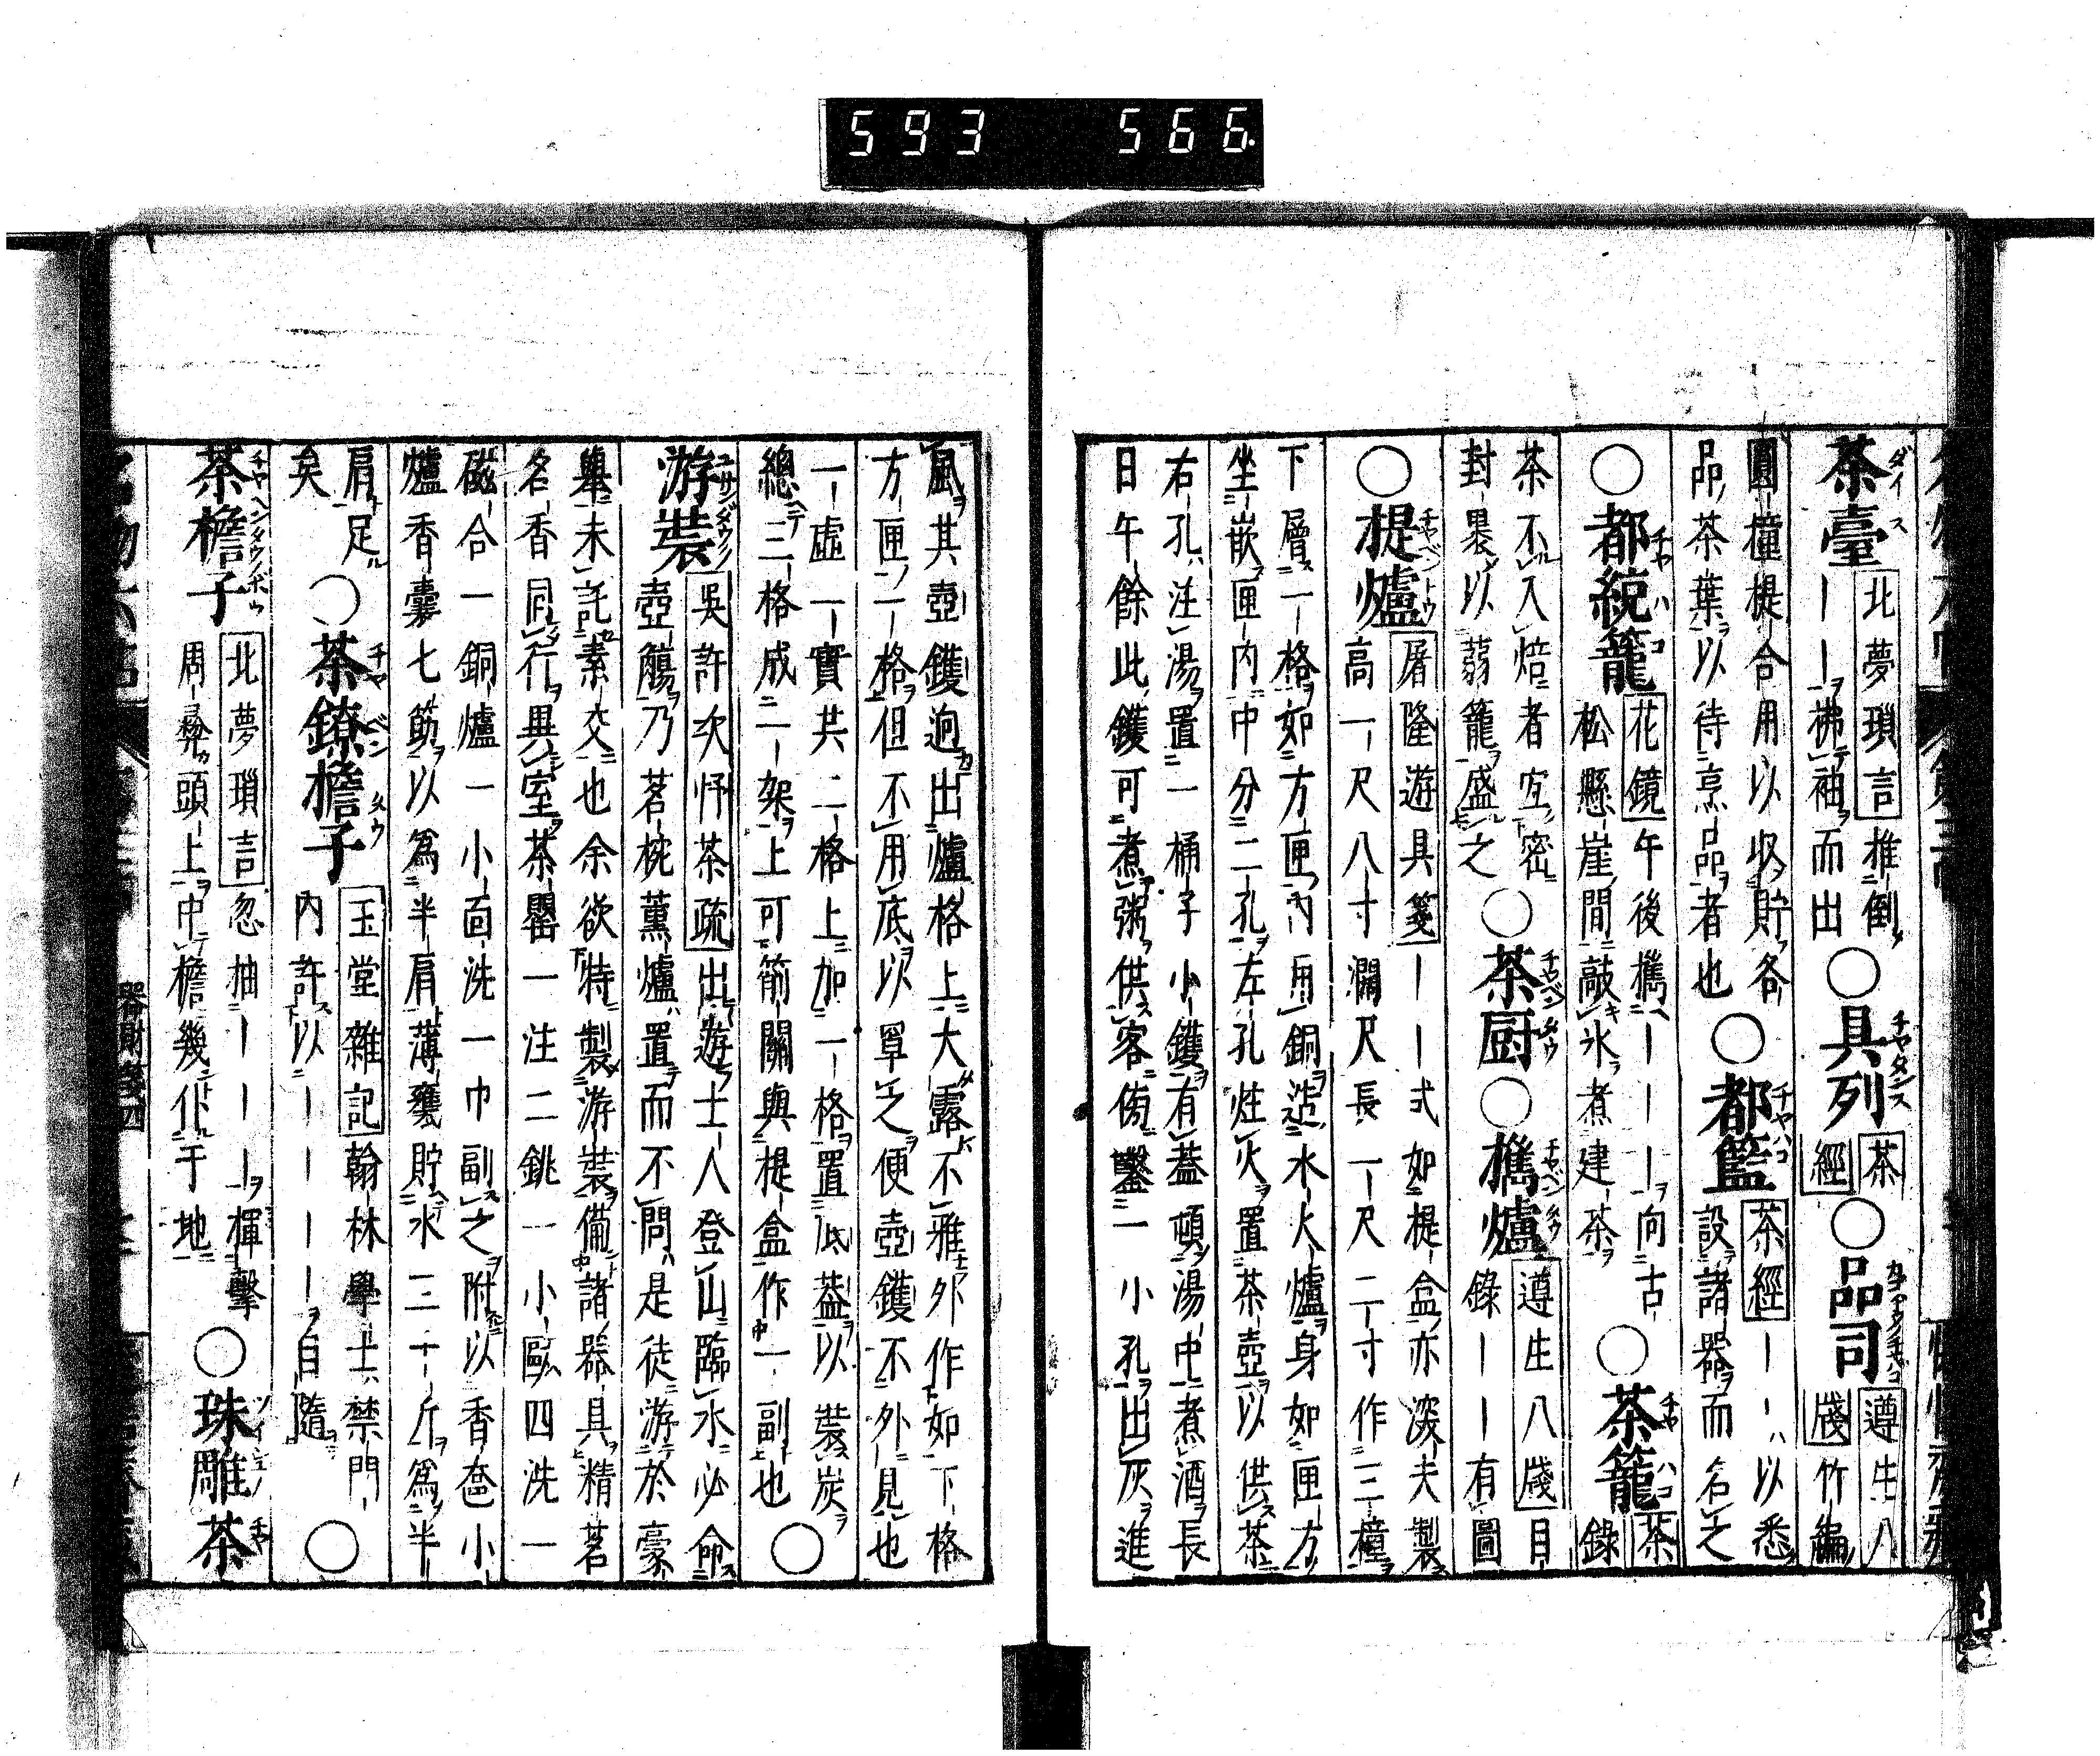 茶臺 北夢瑣言 推倒
｜｜拂袖而出 ○具列 茶
經 ○品司 遵生八
牋 竹編
圓橦提合用以収貯各
品茶葉以待烹品者也 ○都籃 茶經｜｜以悉
設諸器而名之
○都統籠 花鏡 午後携｜｜｜向古
松懸崖間敲氷煮建茶 ○茶籠 茶
錄
茶不入焙者宜密
封裹以蒻籠盛之 ○茶厨 ○携爐 遵生八牋 目
錄｜｜有圖
○提爐 屠隆遊具箋｜｜式如提盒亦深夫製
高一尺八寸濶尺長一尺二寸作三橦
下層一格如方匣內用銅造水火爐身如匣方
坐嵌匣內中分二孔左孔炷火置茶壺以供茶
右孔注湯置一桶子小鑊有蓋頓湯中煮酒長
日午餘此鑊可煮粥供客傍鑿一小孔出灰進
風其壺鑊迥出爐格上大露不雅外作如下格
方匣一格但不用底以罩之便壺鑊不外見也
一虛一實共二格上加一格置底蓋以裝炭
總三格成二架上可箾關與提盒作一副也 ○
游裝 吳許次忬茶疏 出遊士人登山臨水必命
壺觴乃茗椀薰爐置而不問是徒游於豪
舉未託素交也余欲特製游裝備諸器具精茗
名香同行異室茶罌一注二銚一小甌四洗一
磁合一銅爐一小面洗一巾副之附以香奩小
爐香囊七筯以爲半肩薄甕貯水三十斤爲半
肩足
矣 ○茶鐐檐子 玉堂雜記 翰林學士禁門
內許以｜｜｜｜自隨 ○
茶檐子 北夢瑣言 忽抽｜｜｜揮擊
周彝頭上中檐幾仆于地 ○珠雕茶
器財箋四
593 566